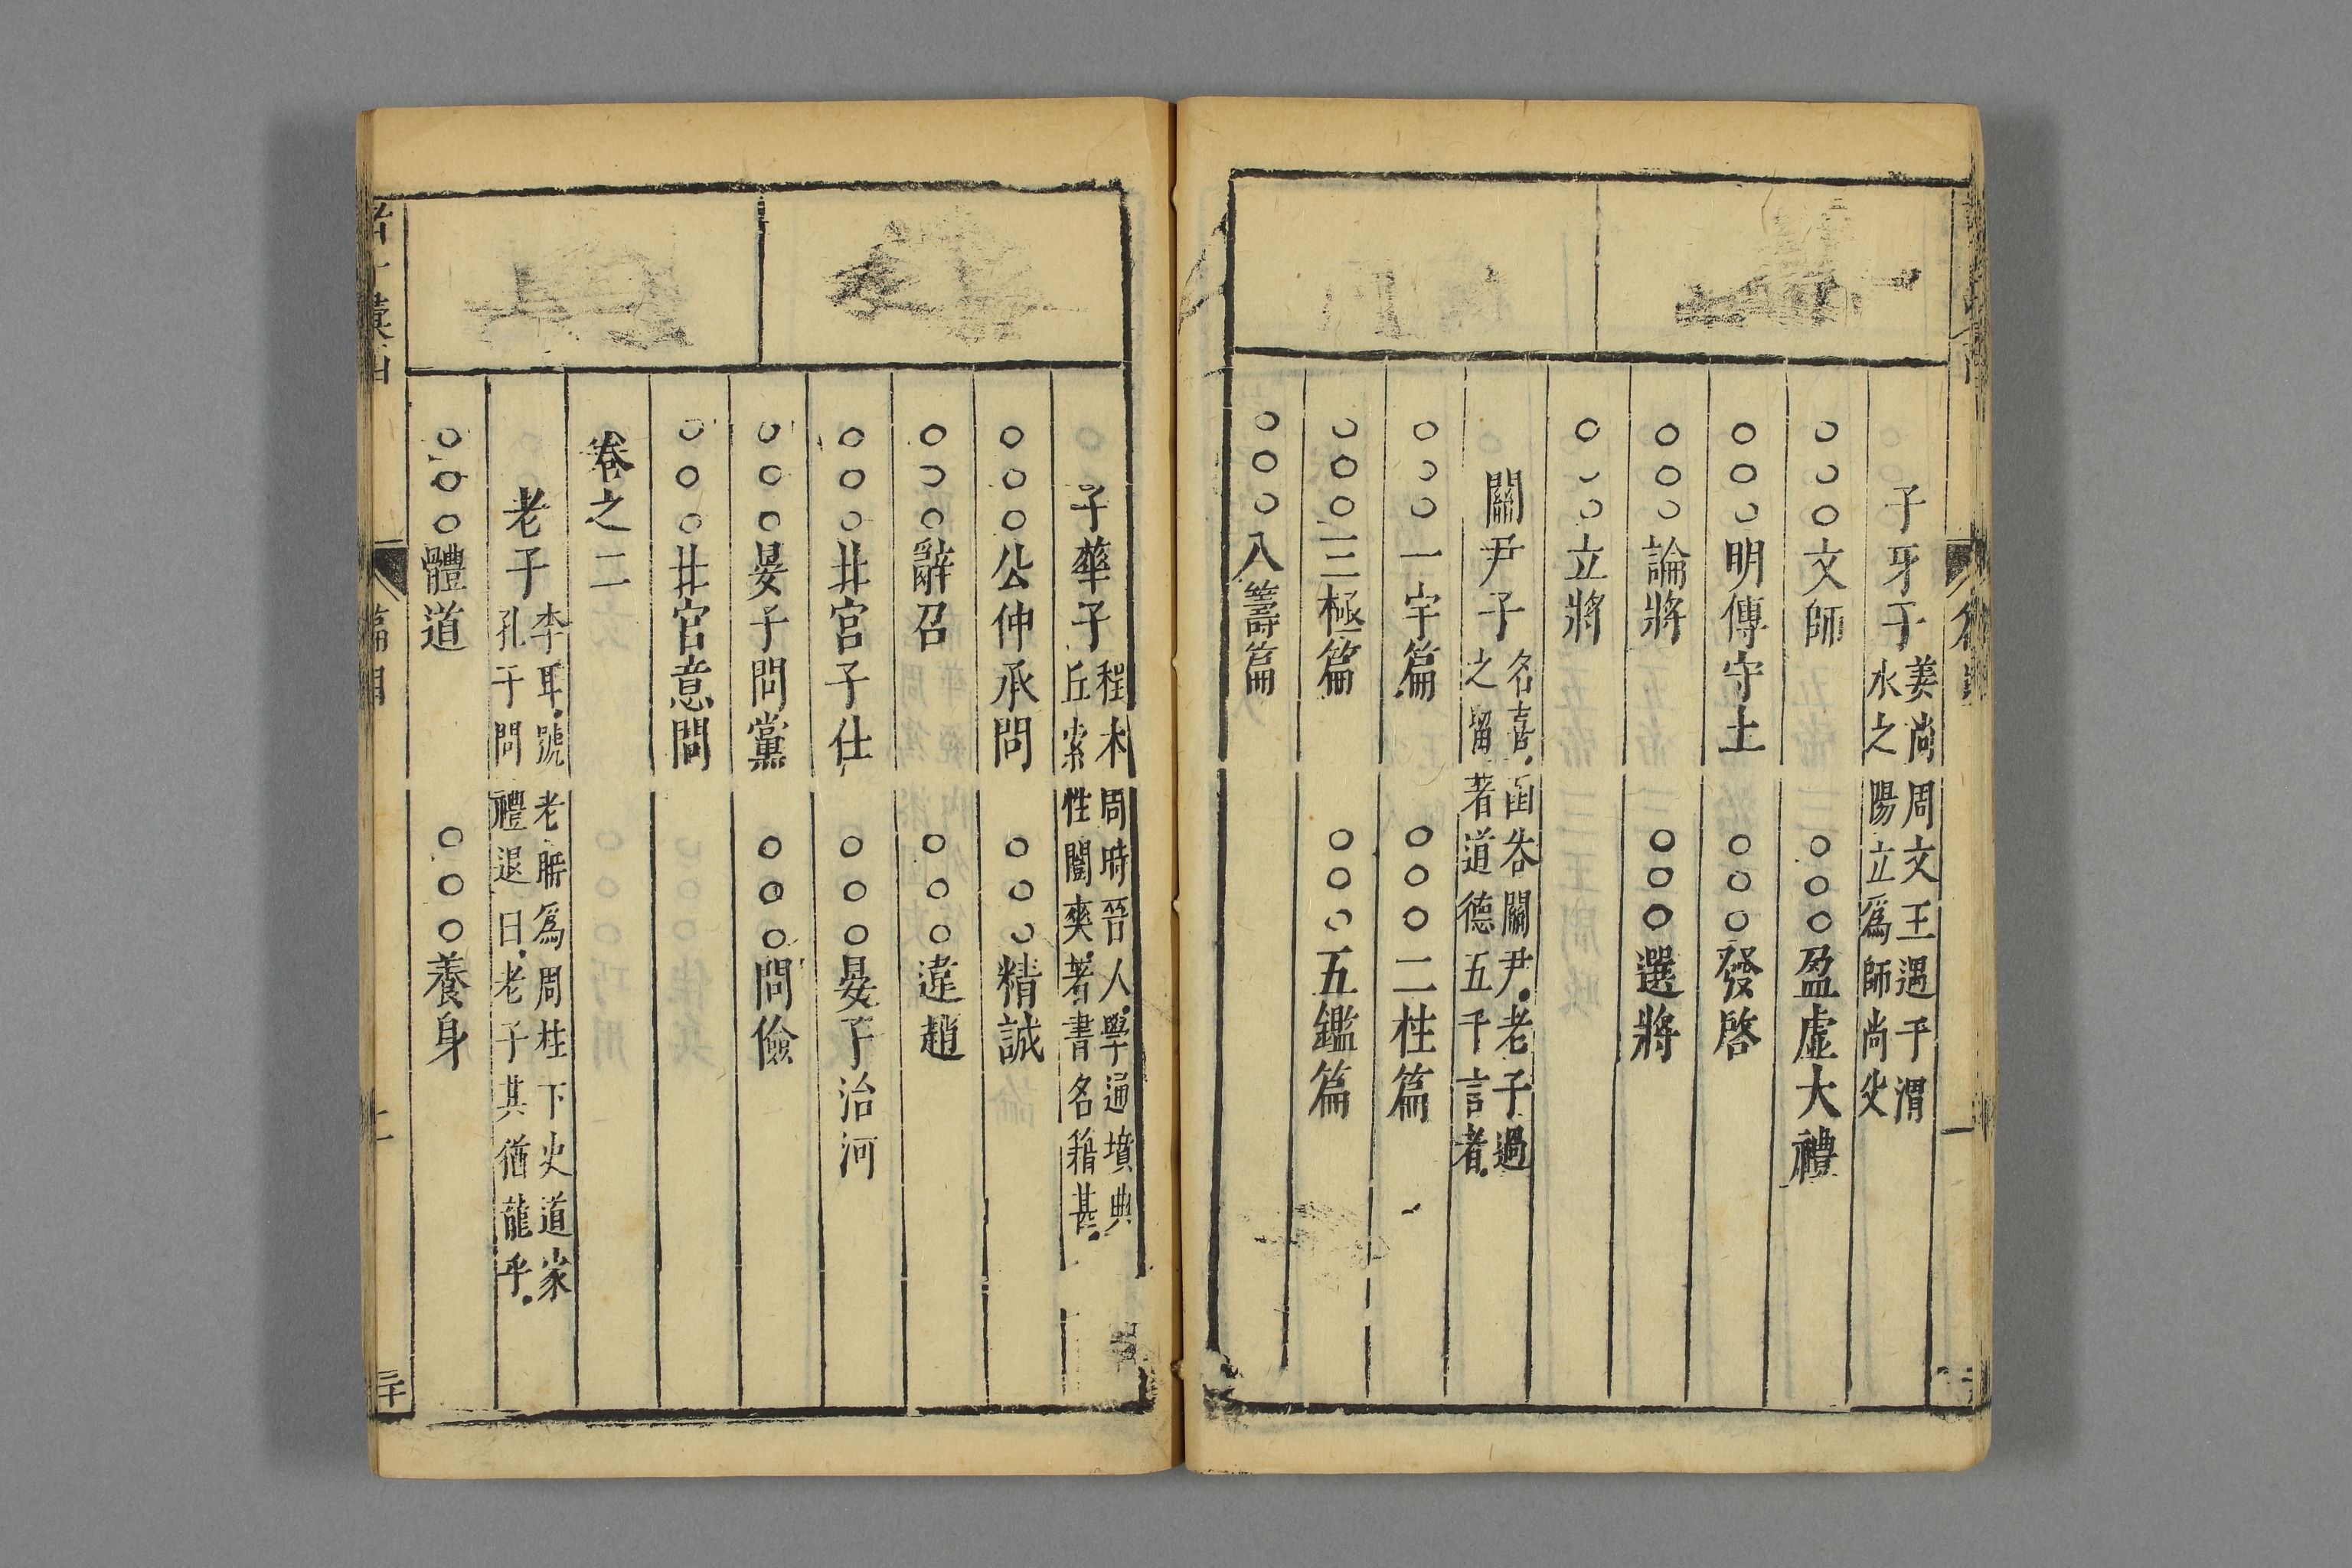 子牙子 姜尚周文王遇于渭水之陽立爲師尚父
○○○文師 ○○○盈虛大禮
○○○明傳守土 ○○○發啓
○○○論將 ○○○選將
○○○立將
關尹子 名喜．函谷關尹．老子過之留著道德五千言者．
○○○一宇篇 ○○○二柱篇
○○○三極篇 ○○○五鑑篇
○○○八籌篇
子華子 程本周時晉人．學通墳典丘索性闓爽．著書名籍甚．
○○○公仲承問 ○○○精誠
○○○辭召 ○○○違趙
○○○北宮子仕 ○○○晏子治河
○○○晏子問黨 ○○○問儉
○○○北宮意問
卷之二
老子 李耳．號老聃爲周柱下史道家孔子問禮退曰．老子其猶龍乎．
○○○體道 ○○○養身
篇目